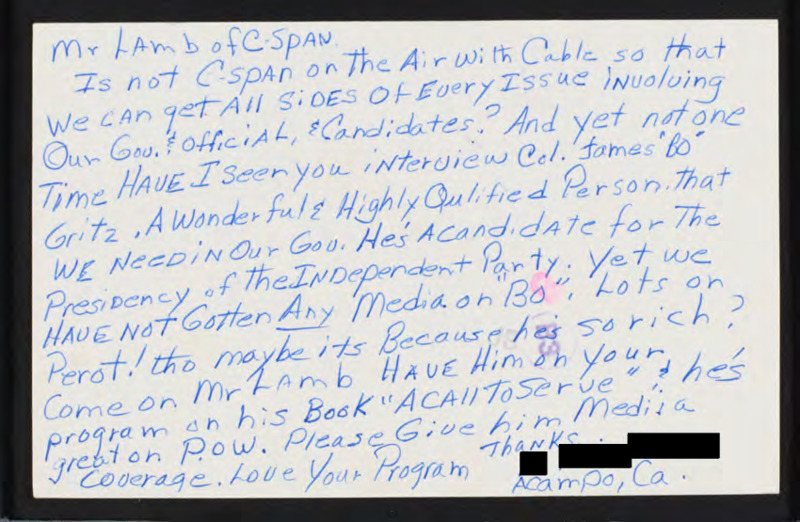 Mr LAmb of C-SPAN.
Is not C-SPAN on The Air with Cable so that
We CAN get All SiDES OF Every Issue iNvolving
Our Gov. & official, & Candidates? And yet not one
Time HAVE I Seen you iNterview Col. James "Bo"
Gritz. A Wonderful & Highly Qulified Person. That
WE NEED iN Our Gov. He's A candidate for The
Presidency of the INDependent Party. Yet we
HAVE NOT GoTTen Any Media on "Bo". Lots on
Perot! tho maybe its Because he's so rich?
Come on Mr LAmb HAVE Him on your
program on his Book "A CAll To Serve" & he's
great on P.O.W. Please Give him Mediia
Coverage. Love Your Program Thanks.
Acampo, Ca.